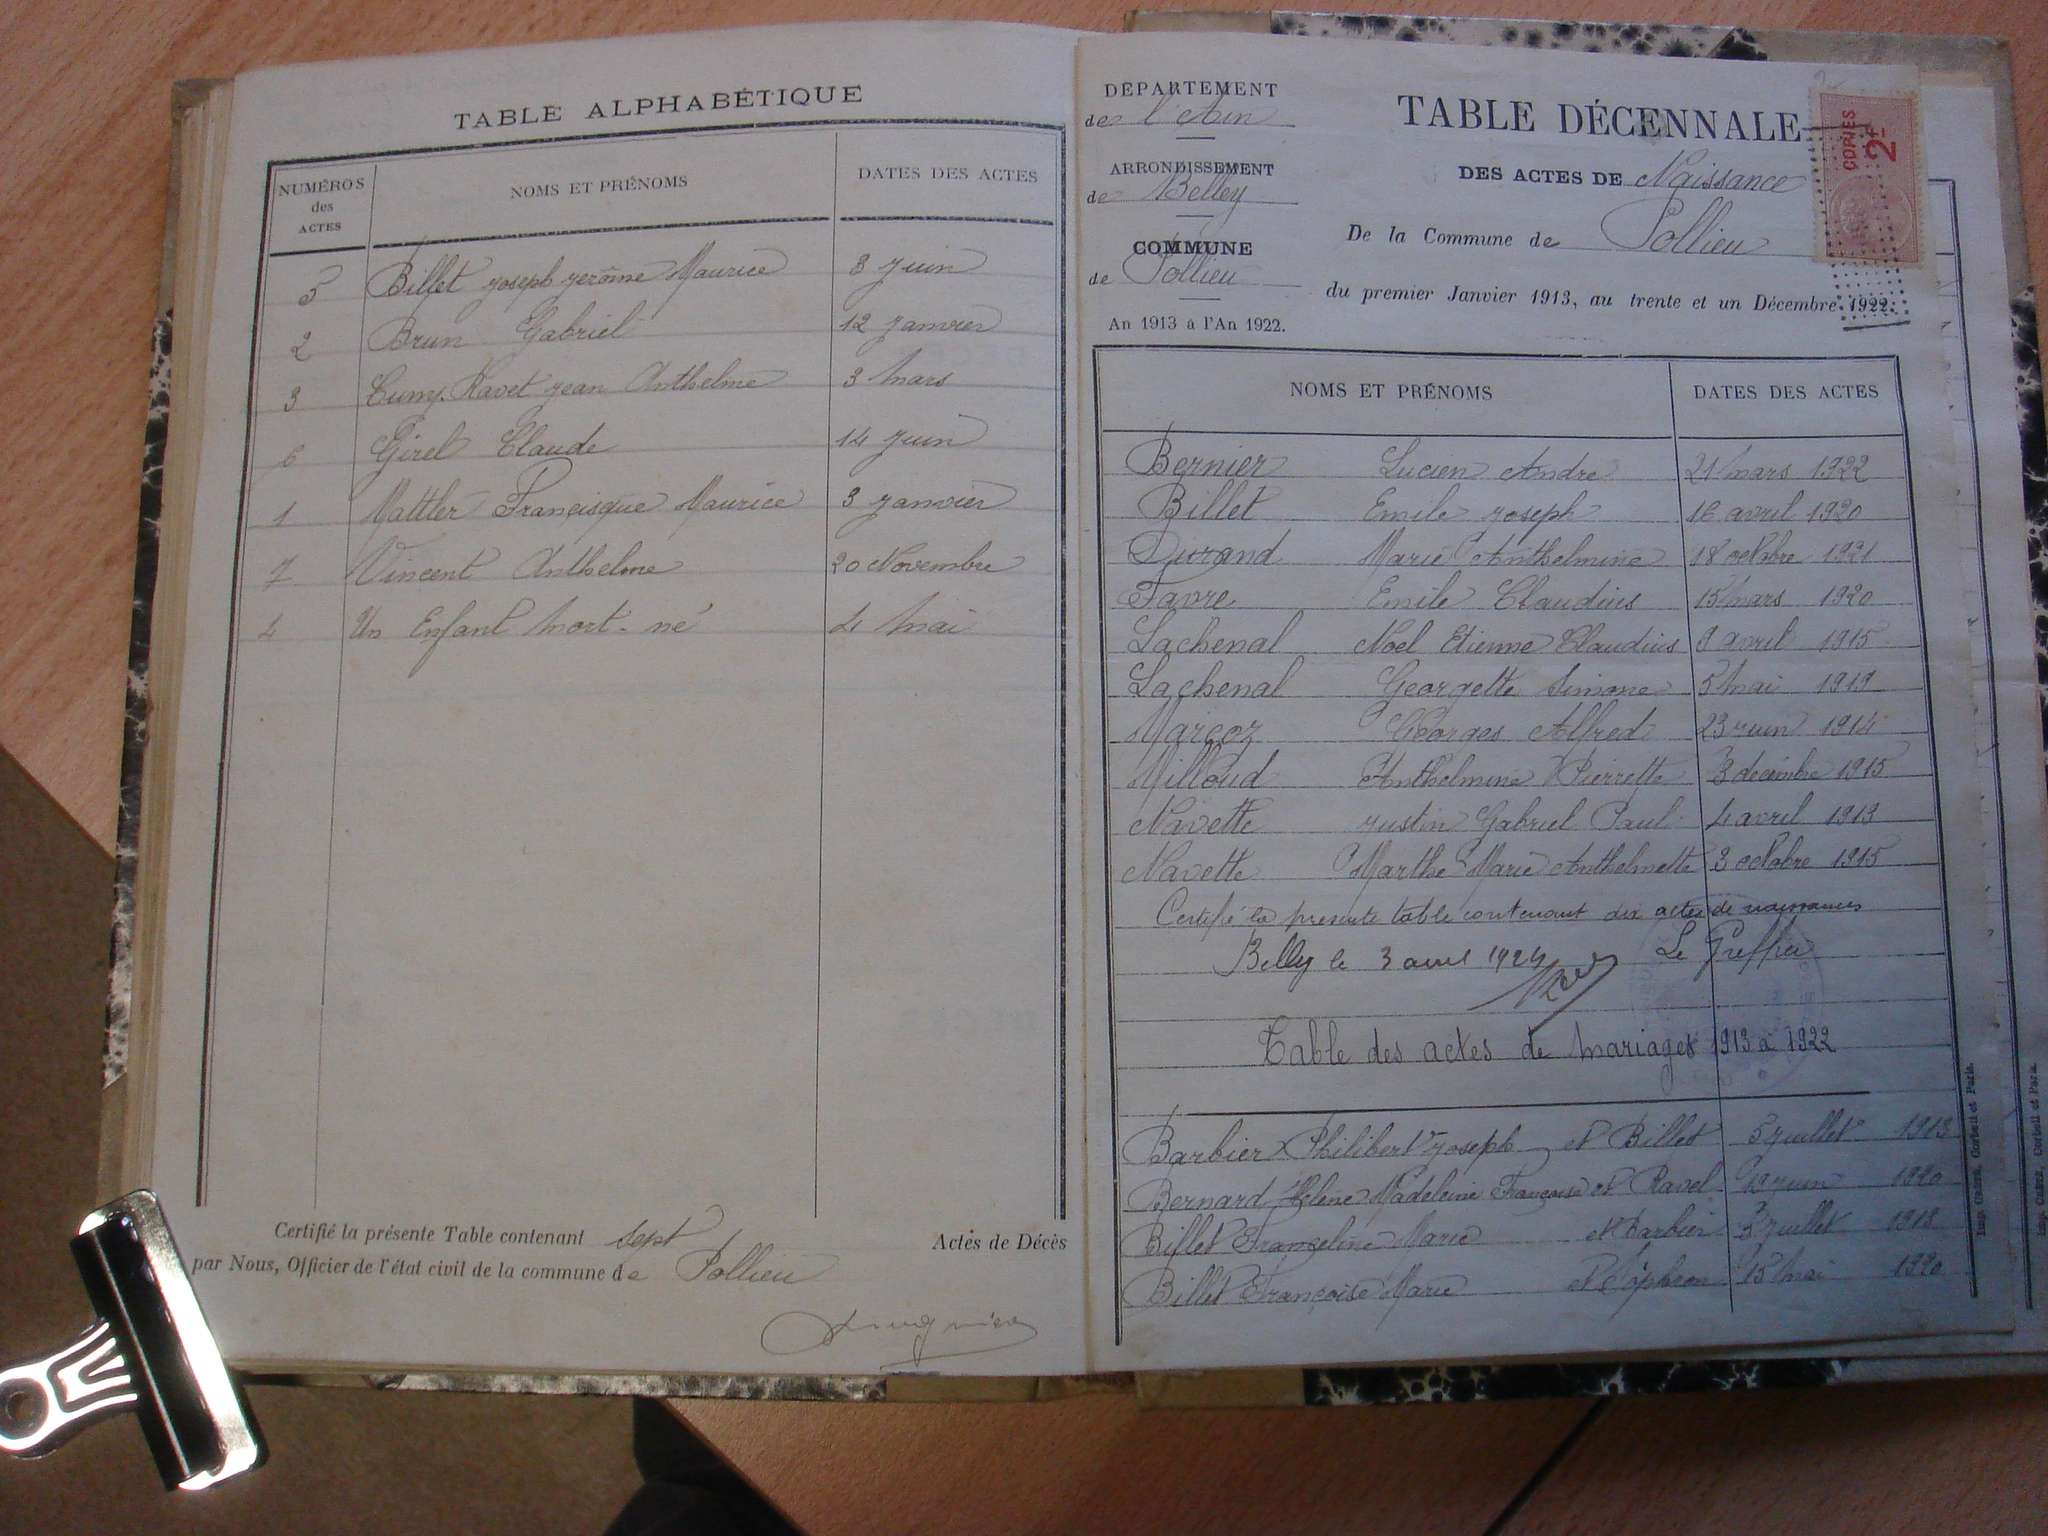 TABLE ALPHABÉTIQUE
NUMÉROS des ACTES NOMS ET PRÉNOMS DATES DES ACTES
5 Billet Joseph Jerôme Maurice 8 Juin
2 Brun Gabriel 12 Janvier
3 Jean Anthelme 3 Mars
6 Girel Claude 14 Juin
1 Mattler Francisque Maurice 3 Janvier
7 Vincent Anthelme 20 Novembre
4 Un Enfant Mort-né 4 Mai
Certifié la présente Table contenant sept Actes de Décès
par Nous, Officier de l'état civil de la commune de Pollieu
DÉPARTEMENT
de l'Ain
ARRONDISSEMENT
de Belley
COMMUNE
de Pollieu
An 1913 à l'An 1922.
TABLE DÉCENNALE
DES ACTES DE Naissance
De la Commune de Pollieu
du premier Janvier 1913, au trente et un Décembre 1922.
COPIES
2F
NOMS ET PRÉNOMS DATES DES ACTES
Bernier Lucien Andre 21 Mars 1922
Billet Emile Joseph 16 avril 1920
Durand Marie Anthelmine 18 octobre 1921
Favre Emile Claudius 15 Mars 1920
Lachenal Noel Etienne Claudius 9 avril 1915
Lachenal Georgette Simone 5 Mai 1919
Marcoz Georges Alfred 23 Juin 1914
Milloud Anthelmine Pierrette 3 decembre 1915
Navette Justin Gabriel Paul 4 avril 1913
Navette Marthe Marie Anthelmette 3 octobre 1915
Certifié la presente table contenant dix actes de naissances
Belley le 3 avril 1924 Le Greffier
Table des actes de Mariages 1913 à 1922
Barbier Philibert Joseph et Billet 5 Juillet 1913
Bernard Helene Madeleine Françoise et Ravel 19 Juin 1920
Billet Franceline Marie et Barbier 5 Juillet 1913
Billet Françoise Marie et 15 Mai 1920
Imp. Crété, Corbeil et Paris.
Imp. Crété, Corbeil et Paris.